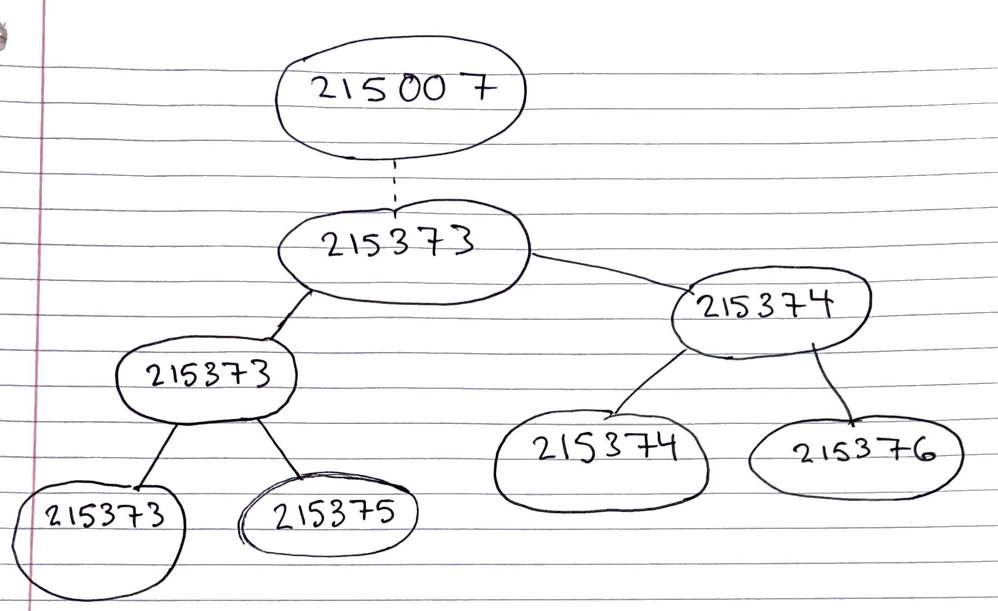 215007
215373
215374
215373
215374
215376
215373
215375